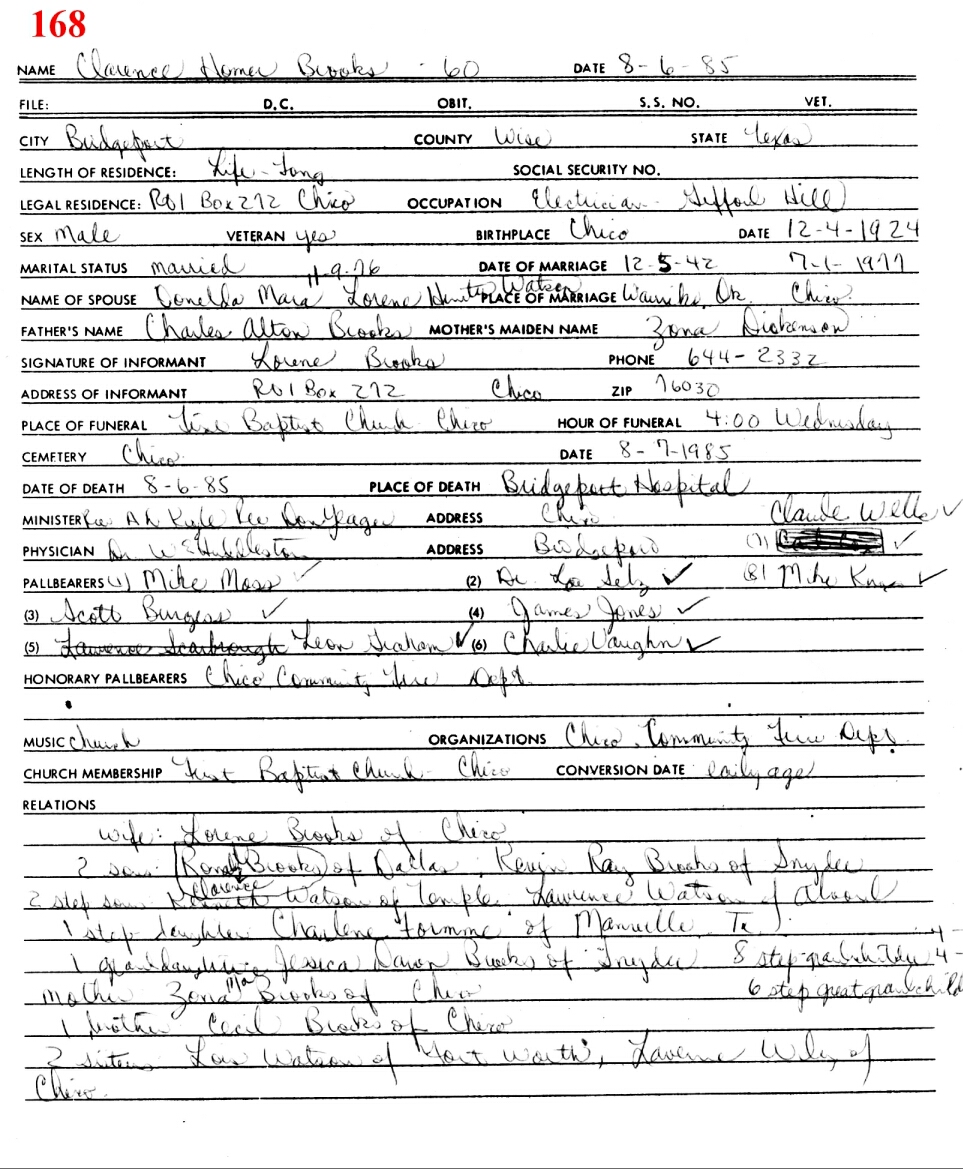 168
NAME Clarence Homer Brooks - 60 DATE 8-6-85
FILE: D.C. OBIT. S.S. NO. VET.
CITY Bridgeport COUNTY Wise STATE Texas
LENGTH OF RESIDENCE: Life-Long SOCIAL SECURITY NO.
LEGAL RESIDENCE: Rt 1 Box 272 Chico OCCUPATION Electrician - Gifford Hill
SEX Male VETERAN yes BIRTHPLACE Chico DATE 12-4-1924
MARITAL STATUS married 11-9-76 DATE OF MARRIAGE 12-5-42 7-1-1977
NAME OF SPOUSE Donelda Lorene Watson PLACE OF MARRIAGE Ok. Chico
FATHER'S NAME Charles Alton Brooks MOTHER'S MAIDEN NAME Zona Dickenson
SIGNATURE OF INFORMANT Lorene Brooks PHONE 644-2332
ADDRESS OF INFORMANT Rt 1 Box 272 Chico ZIP 76030
PLACE OF FUNERAL First Baptist Church Chico HOUR OF FUNERAL 4:00 Wednesday
CEMETERY Chico DATE 8-7-1985
DATE OF DEATH 8-6-85 PLACE OF DEATH Bridgeport Hospital
MINISTER Rev A R Kyle Rev Don Yeager ADDRESS Chico Claude Wells ✓
PHYSICIAN Dr. W E Huddleston ADDRESS Bridgeport (7) ✓
PALLBEARERS (1) Mike Moss ✓ (2) Dr. ✓ (8) Mike ✓
(3) Scott Burgess ✓ (4) James Jones ✓
(5) Lawrence Scarbrough Leon Graham ✓ (6) Charlie Vaughn ✓
HONORARY PALLBEARERS Chico Community Fire Dept.
MUSIC church ORGANIZATIONS Chico Community Fire Dept.
CHURCH MEMBERSHIP First Baptist Church Chico CONVERSION DATE early age
RELATIONS
wife: Lorene Brooks of Chico
2 sons: Brooks of Dallas, Kevin Ray Brooks of Snyder
Clarence
2 step sons Kenneth Watson of Temple Lawrence Watson of Alvord
1 step daughter Charlene of Tx.
1 granddaughter Jessica Brooks of Snyder 8 step-grandchildren 4-4-
mother Zona Mae Brooks of Chico 6 step great grandchild
1 brother Cecil Brooks of Chico
2 sisters Watson of Fort Worth, Laverne of
Chico